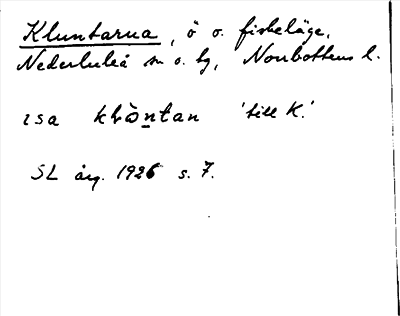 Kluntarna, ö o. fiskeläge,
Nederluleå sn o. tg, Norrbottens l.
isa klòntan 'till K.'
SL årg. 1926 s. 7.